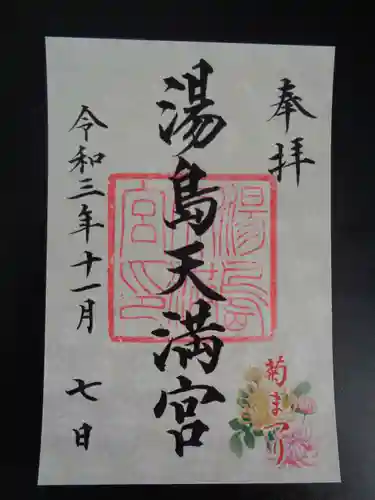 奉拝
湯島天満宮
令和三年十一月七日
菊まつり
湯島
天満
宮印